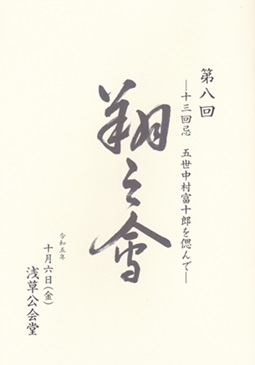 第八回
―十三回忌　五世中村富十郎を偲んで―
翔之會
令和五年
十月六日(金)
浅草公会堂